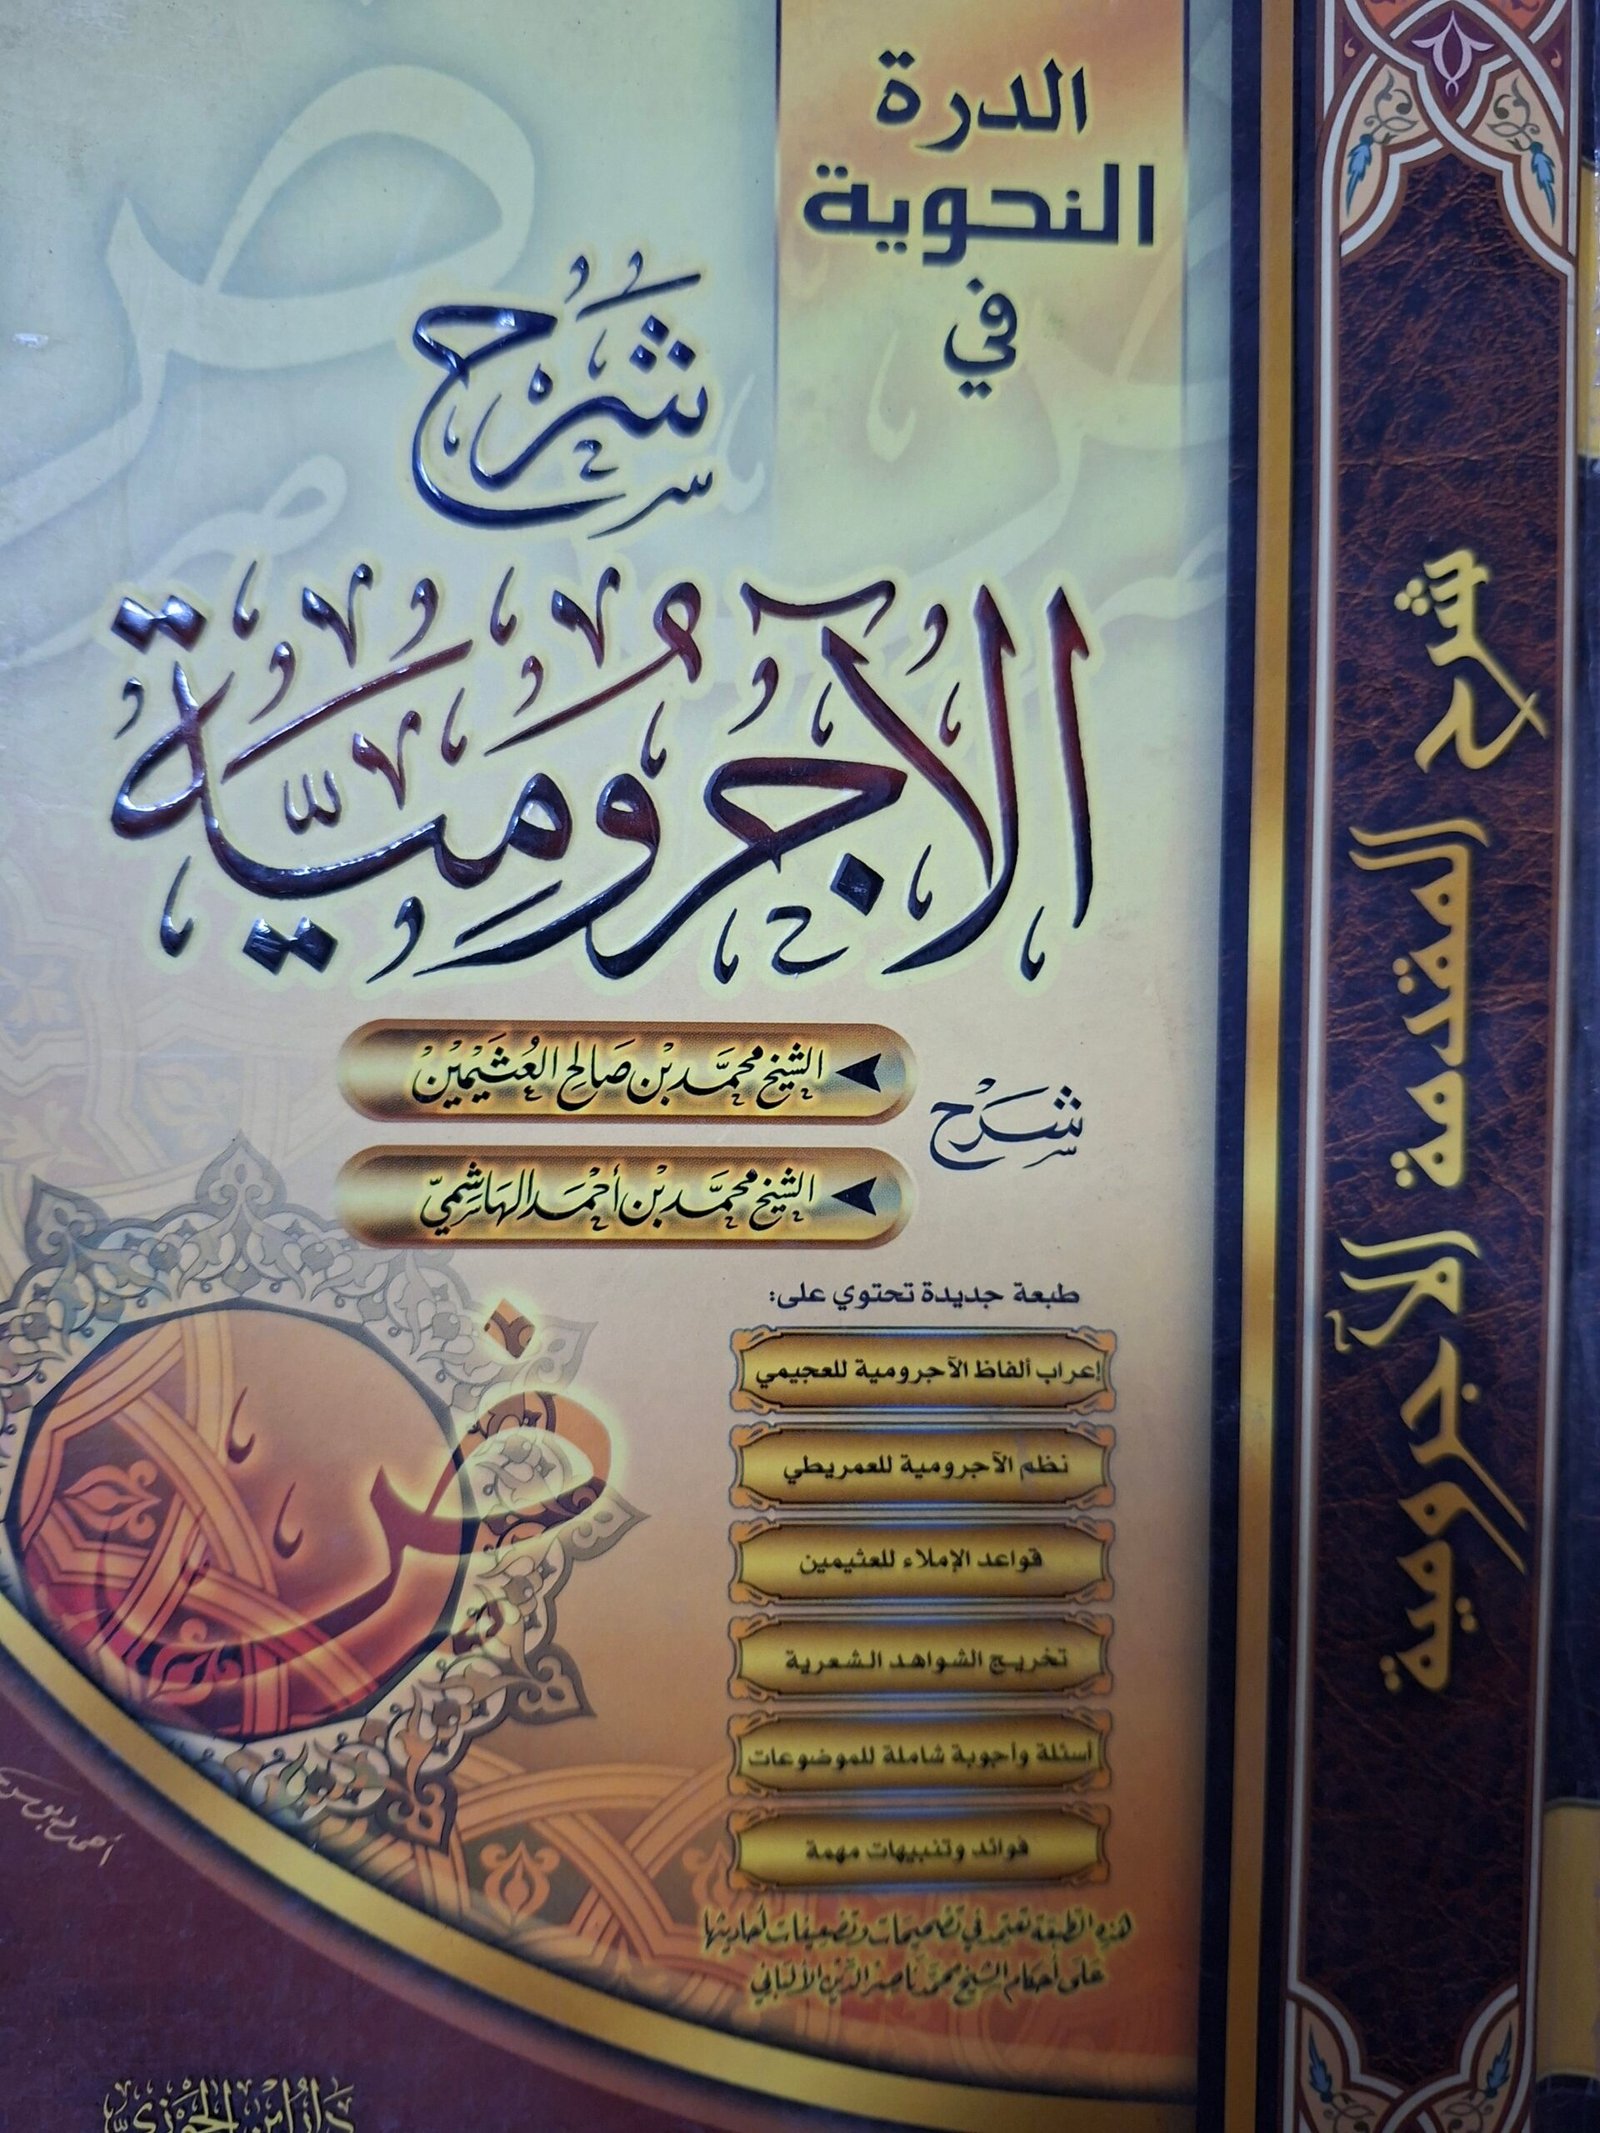 الدرة
النحوية
في
شَرْح
الآجُرُّومِيَّة
شَرْح
الشيخ محمَّد بْن صَالِح العُثَيْمِيْنْ
الشيخ محمَّد بْن أحْمَد الهَاشِميّ
طبعة جديدة تحتوي على:
إعراب ألفاظ الآجرومية للعجيمي
نظم الآجرومية للعمريطي
قواعد الإملاء للعثيمين
تخريج الشواهد الشعرية
أسئلة وأجوبة شاملة للموضوعات
فوائد وتنبيهات مهمة
هذه الطبعة تعتمد في تصحيحات وتضعيفات أحاديثها
على أحكام الشيخ محمَّد ناصر الدّين الألباني
دَارُ ابْن الجَوْزي
شرح المقدمة الآجرومية